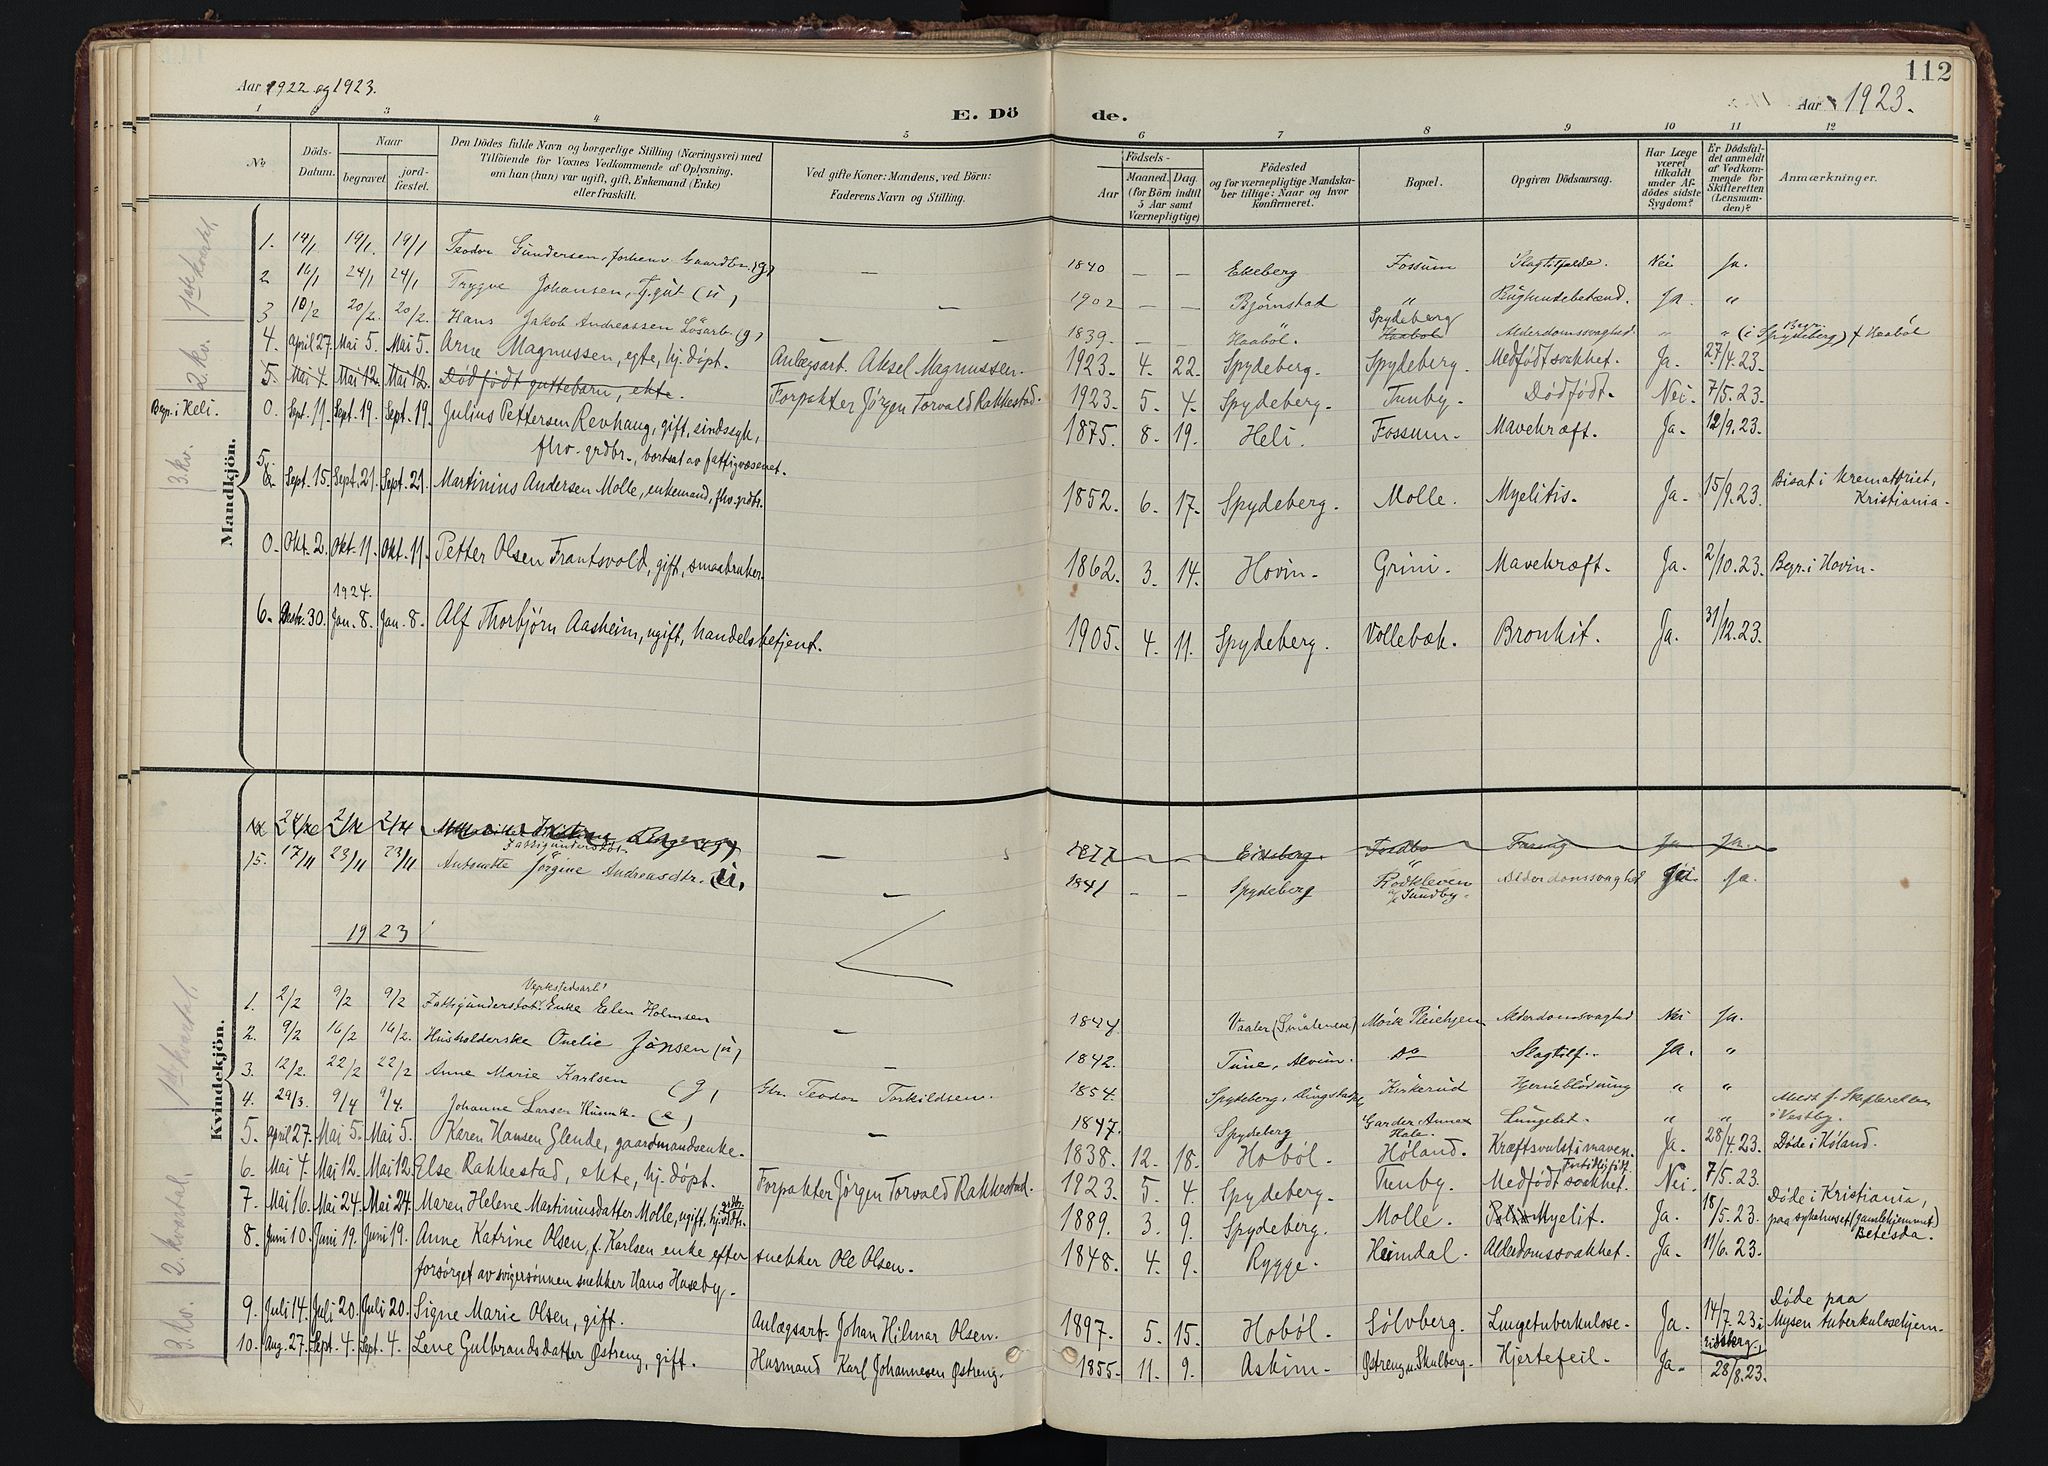 112
Aar 1922 og 1923.
E. Dö de.
Aar 1923.
1 2 3 4 5 6 7 8 9 10 11 12
No
Döds-Datum.
Naar begravet. jord-fæstet.
Den Dödes fulde Navn og borgerlige Stilling (Næringsvei) med Tilföiende for Voxnes Vedkommende af Oplysning, om han (hun) var ugift, gift, Enkemand (Enke) eller fraskilt.
Ved gifte Koner: Mandens, ved Börn: Faderens Navn og Stilling.
Födsels-
Aar Maaned. Dag (for Börn indtil 5 Aar samt Værnepligtige)
Födested og for værnepligtige Mandskaber tillige: Naar og hvor konfirmeret.
Bopæl.
Opgiven Dödsaarsag.
Har Læge været tilkaldt under Afdödes sidste Sygdom?
Er Dödsfaldet anmeldt af Vedkommende for Skifteretten (Lensmanden)?
Anmærkninger.
Mandkjön.
1ste kvartal.
1. 14/1 19/1 19/1 Teodor Gundersen, Gaardbr. (g) — 1840 — — Ekeberg Fossum Slagtilfælde. Nei Ja.
2 16/1 24/1 24/1 Trygve Johansen, Tj.gut (u) — 1902 — — Bjørnstad " Bughindebetænd. Ja. "
3 10/2 20/2. 20/2. Hans Jakob Andreassen Løsarb. (g) — 1839. — — Haaböl. Spydeberg Haaböl Alderdomssvaghed " " (Begr. i Spydeberg) f Haaböl
2. kv.
4. April 27. Mai 5. Mai 5. Arne Magnussen, egte, hj. døpt. Anlægsarb. Aksel Magnussen. 1923. 4. 22. Spydeberg. Spydeberg. Medfødt svakhet. Ja. 27/4.23.
5. Mai 4. Mai 12. Mai 12. Dødfødt guttebarn, ekte. Forpakter Jörgen Torvald Rakkestad. 1923. 5. 4. Spydeberg. Tunby. Dødfødt. Nei. 7/5.23.
Begr. i Heli. 0. Sept. 11. Sept. 19. Sept. 19. Julius Pettersen Revhaug, gift, sindssyk, 1875. 8. 19. Heli. Fossum. Mavekræft. Ja. 12/9.23.
fhv. grdbr., bortsat av fattigvæsenet.
3. kv.
5. Sept. 15. Sept. 21. Sept. 21. Martinius Andersen Molle, enkemand, fhv. grdbr. 1852. 6. 17. Spydeberg. Molle. Myelitis. Ja. 15/9.23. Bisat i krematoriet, Kristiania.
0. Okt. 2. Okt. 11. Okt. 11. Petter Olsen Frantsvold, gift, smaabruker. 1862. 3. 14. Hovin. Grini. Mavekræft. Ja. 2/10.23. Begr. i Hovin.
1924.
6. Desbr. 30. Jan. 8. Jan. 8. Alf Thorbjörn Aasheim, ugift, handelsbetjent. 1905. 4. 11. Spydeberg. Vollebæk. Bronkit. Ja. 31/12.23.
Kvindekjön.
— 1877 — — Eidsberg. Ja. Ja.
15. 17/11 23/11 23/11 Fattigunderstöt. Antonette Jørgine Andreasdtr. (u) — 1841 — — Spydeberg Rodkleven u/ Sundby. Alderdomssvaghed Ja.
1923
1ste kvartal.
1. 2/2 9/2 9/2 Fattigunderstöt. Verkstedsarb. Enke Elen Holmsen 1844 Vaaler (Smålenene) Mörk Pleiehjem Alderdomssvaghed Nei Ja.
2. 9/2 16/2 16/2. Husholderske Onelie Jönsen (u) — 1842. Tune, Alvim. Do Slagtilf. Ja. "
3. 12/2. 22/2 22/2 Anne Marie Karlsen (g) Gbr. Teodor Torkildsen. 1854. Spydeberg, Kirkerud Hjerneblödning " "
4. 29/3. 9/4 9/4. Johanne Larsen Husmk. (e) — 1847. Spydeberg Garder Annex Lungebet. " " i Vestby.
2. kvartal.
5. April 27. Mai 5. Mai 5. Karen Hansen Glende, gaardmandsenke. 1838. 12. 18. Hobøl. Høland. Kræftsvulst i maven. Ja. 28/4.23. Døde i Høland.
6. Mai 4. Mai 12. Mai 12. Else Rakkestad, ekte, hj. döpt. Forpakter Jörgen Torvald Rakkestad. 1923. 5. 4. Spydeberg. Tunby. Medfødt svakhet. For tidlig født. Nei. 7/5.23.
7. Mai 16. Mai 24. Mai 24. Maren Helene Martiniusdatter Molle, ugift, hj.v. grdbr.dtr. 1889. 3. 9. Spydeberg. Molle. Myelit. Ja. 18/5.23. Døde i Kristiania, paa sykehuset (gamlehjemmet) Betesda.
8. Juni 10. Juni 19. Juni 19. Anne Katrine Olsen, f. Karlsen enke efter snekker Ole Olsen. 1848. 4. 9. Rygge. Heimdal. Alderdomssvakhet. Ja. 11/6.23.
forsörget av svigersönnen snekker Hans Haseby.
3. kv.
9. Juli 14. Juli 20. Juli 20. Signe Marie Olsen, gift. Anlægsarb. Johan Hilmar Olsen. 1897. 5. 15. Hobøl. Sølvberg. Lungetuberkulose. Ja. 14/7.23 i Eidsberg, Døde paa Mysen tuberkulosehjem.
10. Aug. 27. Sept. 4. Sept. 4. Lene Gulbrandsdatter Østreng, gift. Husmand Karl Johannesen Østreng. 1855. 11. 9. Askim. Østreng u. Skulberg. Hjertefeil. Ja. 28/8.23.